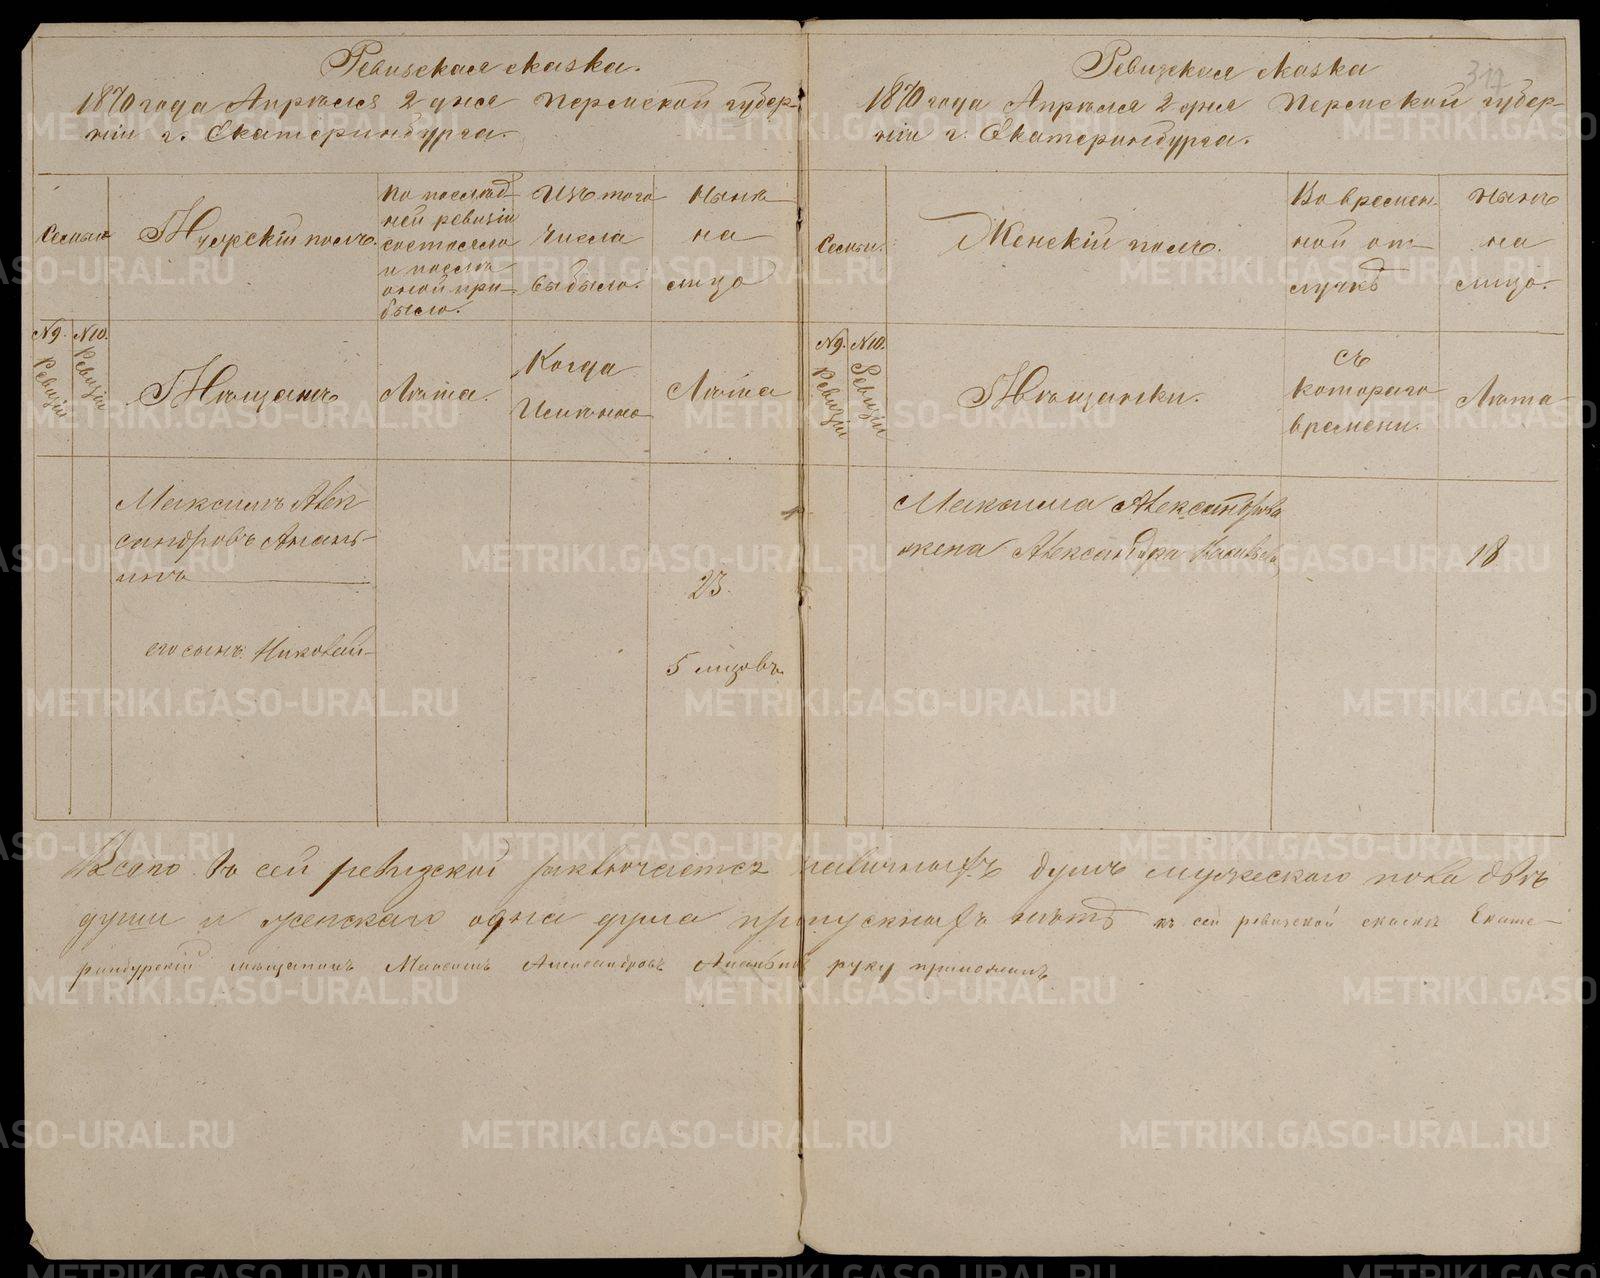 Ревизская сказка.
1870 года Апреля 2 дня Пермской губер-
ніи г. Екатеринбурга.
Семьи
Мужскій полъ.
По послѣд-
ней ревизіи
состояло
и послѣ
оной при-
было.
Изъ того
числа
выбыло.
Нынѣ
на
лицо
№ 9. Ревизіи
№ 10. Ревизіи
Мѣщанъ
Лѣта.
Когда
Именно
Лѣта
Максимъ Алек
сандровъ Анань-
инъ
23.
его сынъ Николай
5 мѣсяцовъ
Ревизская сказка
1870 года Апрѣля 2 дня Пермской губер-
ніи г. Екатеринбурга.
317
Семьи.
Женскій полъ.
Во времен-
ной от-
лучкѣ
Нынѣ
на
лицо.
№ 9. Ревизіи
№ 10. Ревизіи
Мѣщанки.
Съ
котораго
времени.
Лѣта
Максима Александрова
жена Александра
18
Всего въ сей ревизской заключается наличныхъ душъ мужескаго пола двѣ
души и женскаго одна душа пропускныхъ нѣтъ къ сей ревизской сказкѣ Екате-
ринбурскій мѣщанинъ Максимъ Александровъ Ананьинъ руку приложилъ
METRIKI.GASO-URAL.RU